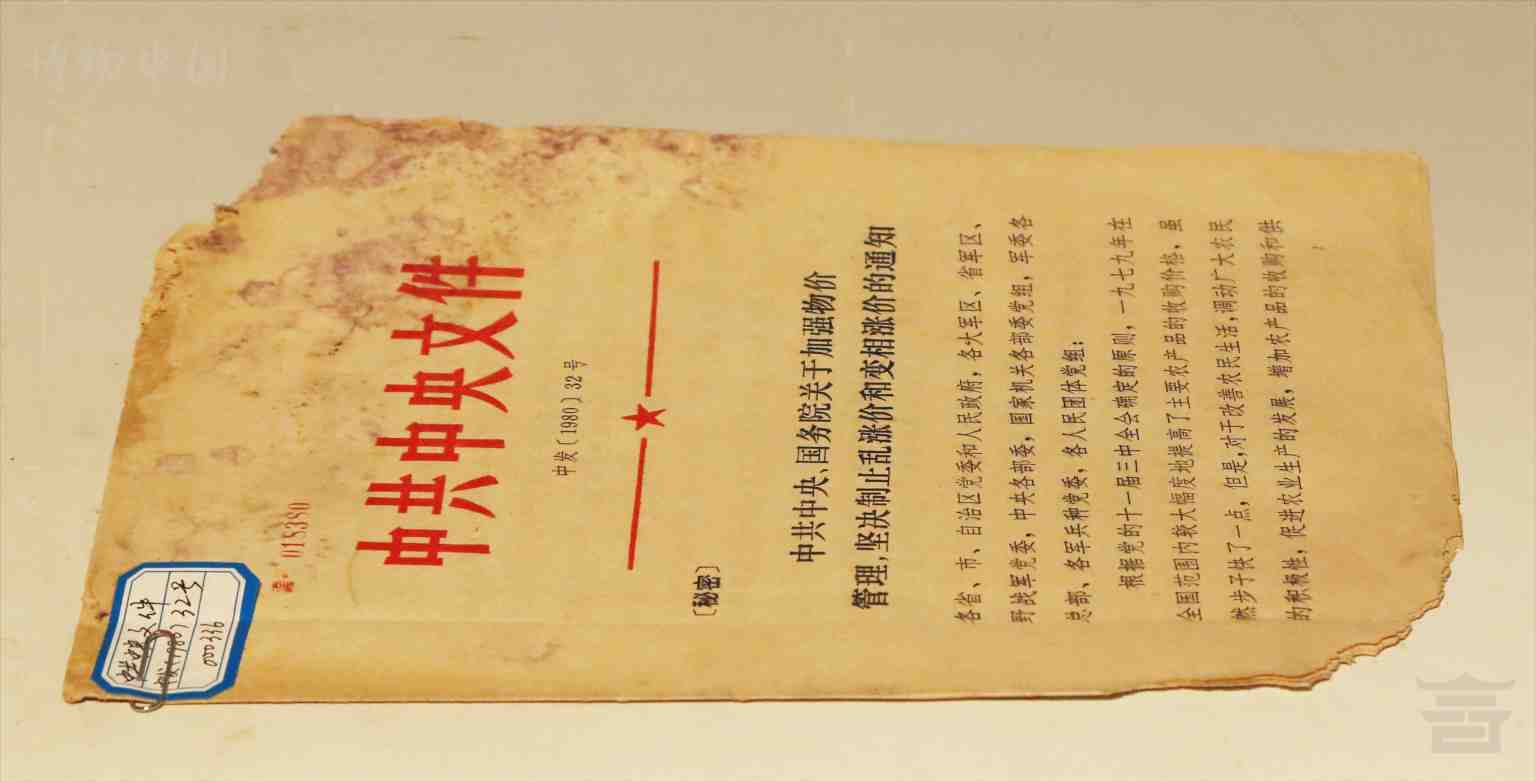 中发(1980)32号
000336
018380
中共中央文件
中发〔1980〕32号
〔秘密〕
中共中央、国务院关于加强物价
管理,坚决制止乱涨价和变相涨价的通知
各省、市、自治区党委和人民政府,各大军区、省军区、
野战军党委,中央各部委,国家机关各部委党组,军委各
总部、各军兵种党委,各人民团体党组:
根据党的十一届三中全会确定的原则,一九七九年在
全国范围内较大幅度地提高了主要农产品的收购价格,虽
然步子快了一点,但是,对于改善农民生活,调动广大农民
的积极性,促进农业生产的发展,增加农产品的收购和供